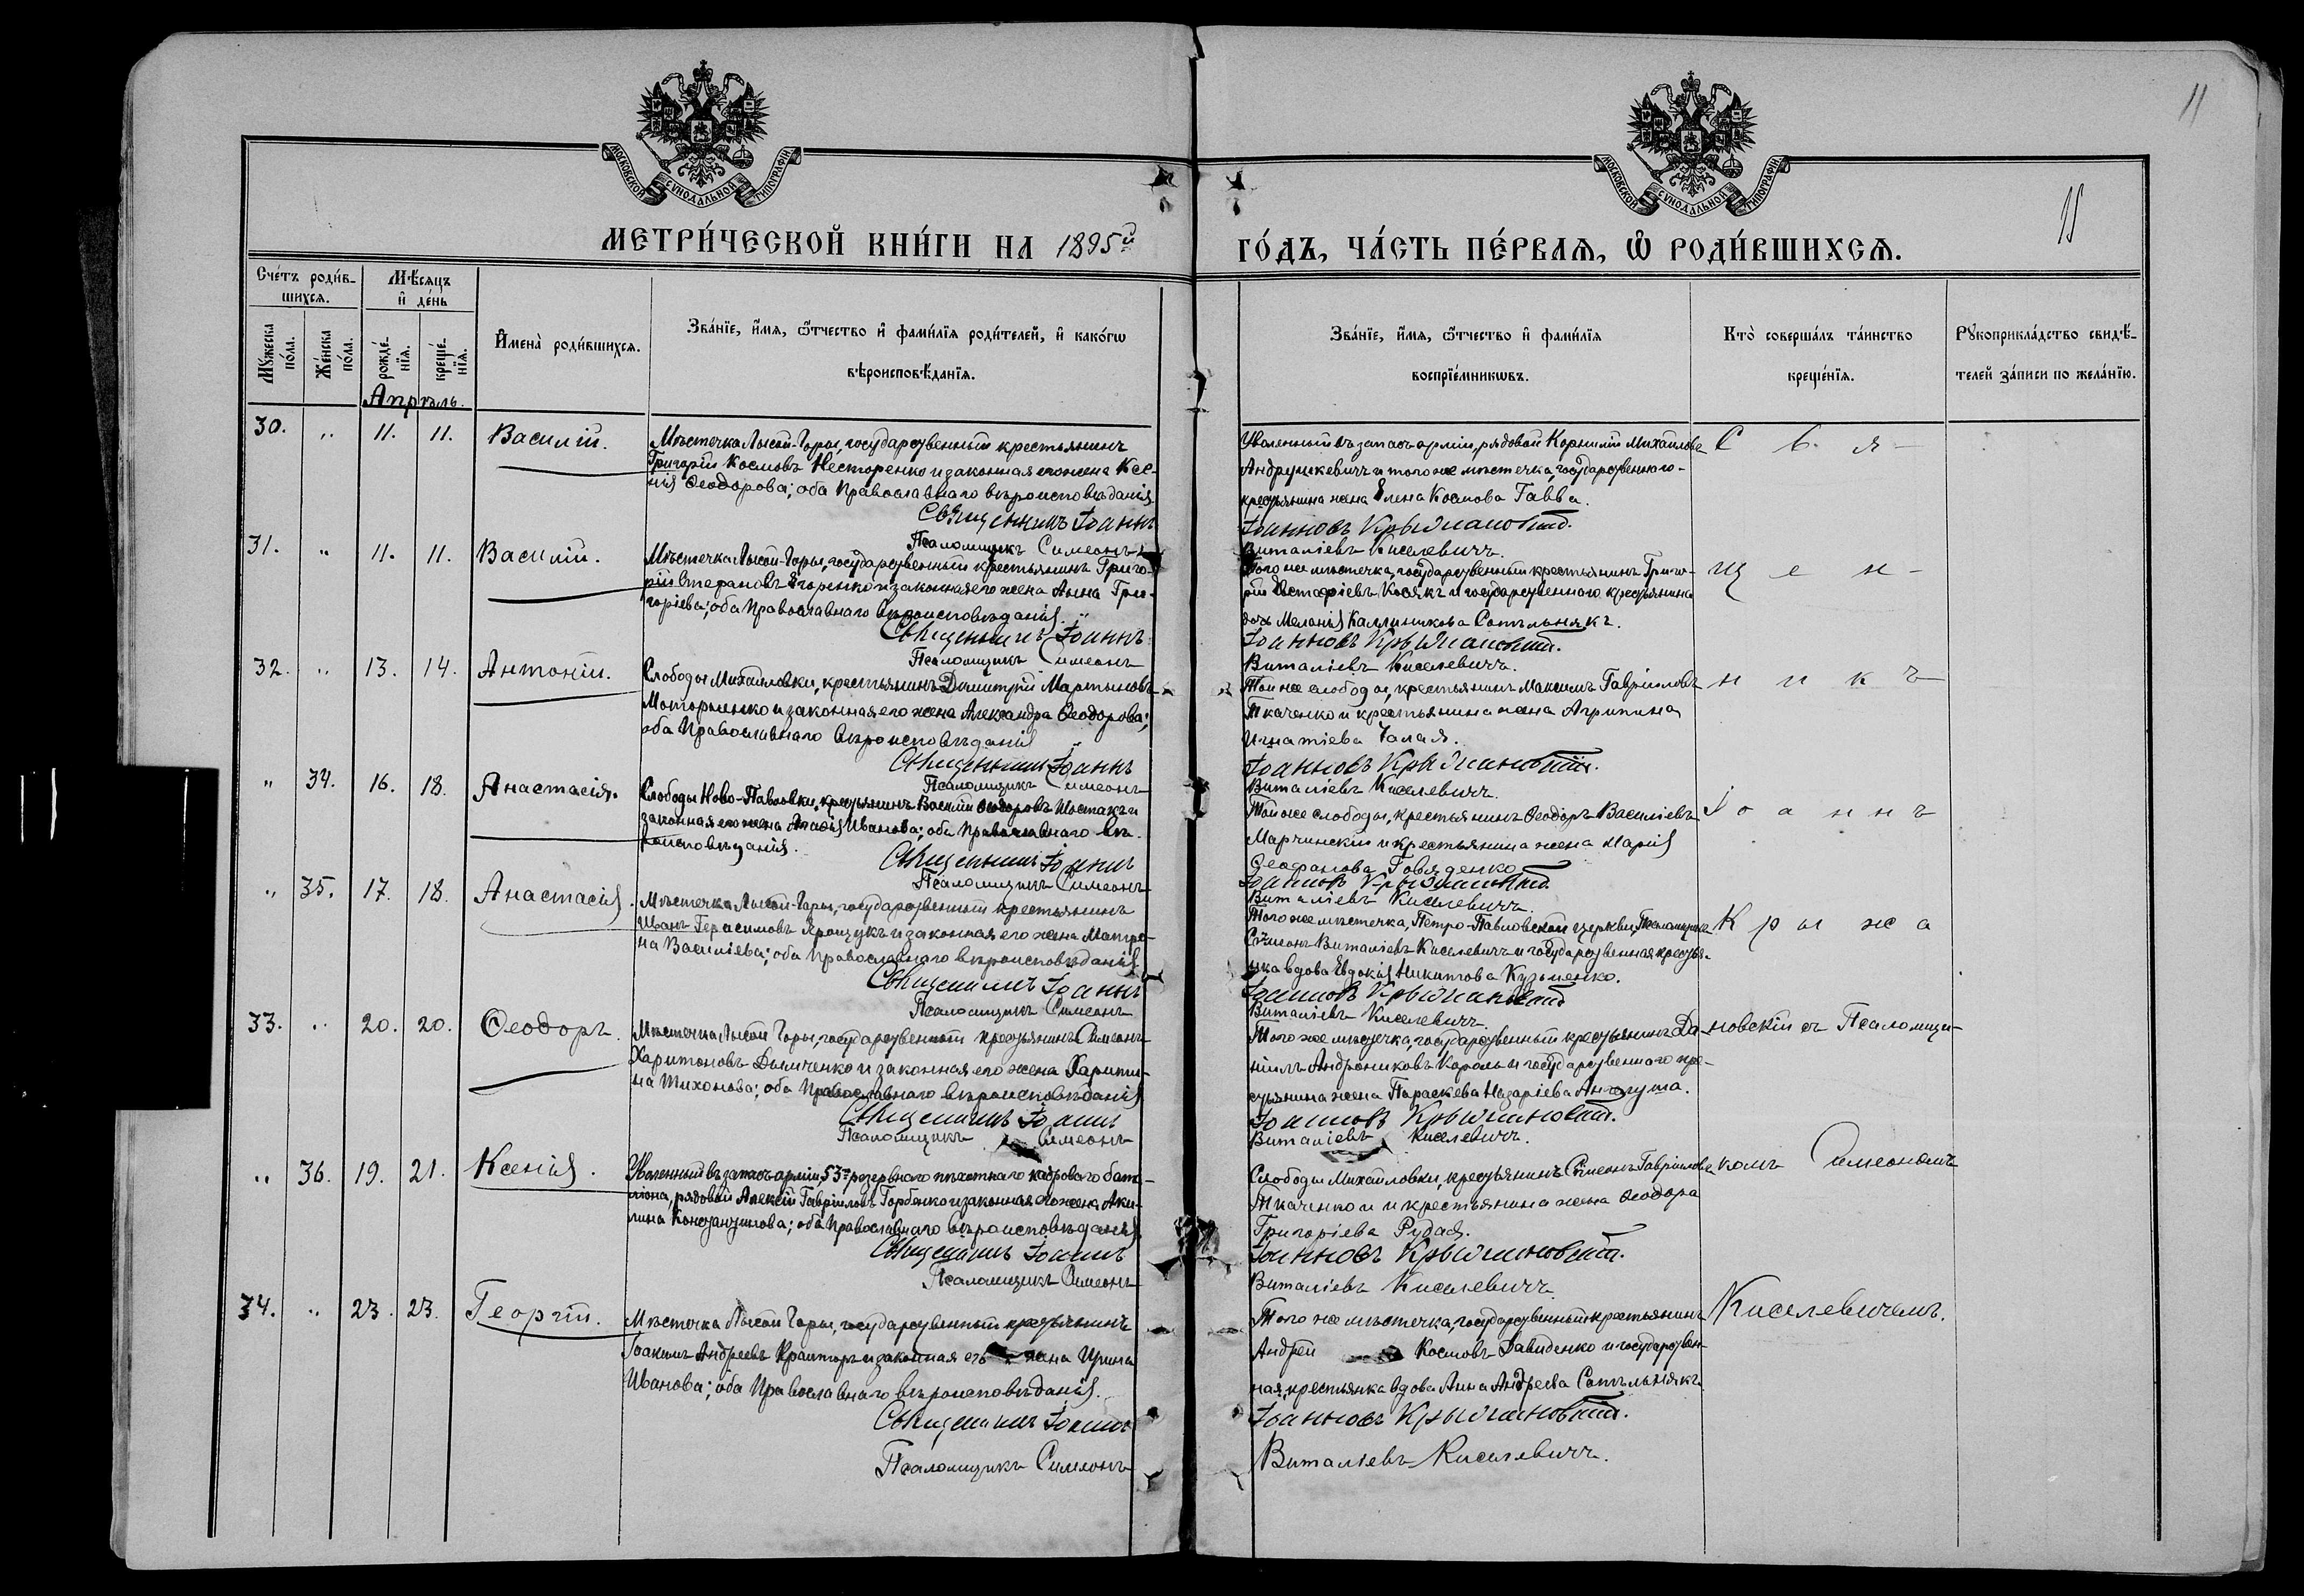 11
МОСКОВСКОЙ СѴНОДАЛЬНОЙ ТИПОГРАФІИ
МОСКОВСКОЙ СѴНОДАЛЬНОЙ ТИПОГРАФІИ
15
МЕТРИ́ЧЕСКОЙ КНИ́ГИ НА 1895й
ГО́ДЪ, ЧА́СТЬ ПЕ́РВАѦ, Ѡ҆ РОДИ́ВШИХСѦ.
Сче́тъ роди́в-
шихсѧ.
Мѣ́сѧцъ
и҆ де́нь
Мꙋ́жеска по́ла.
Же́нска по́ла.
рожде́нїѧ.
креще́нїѧ.
И҆мена̀ роди́вшихсѧ.
Зва́нїе, и҆́мѧ, ѻ҆́тчество и҆ фами́лїѧ роди́телей, и҆ како́гѡ
вѣроисповѣ́данїѧ.
Зва́нїе, и҆́мѧ, ѻ҆́тчество и҆ фами́лїѧ
воспрїе́мникѡвъ.
Кто̀ соверша́лъ та́инство
креще́нїѧ.
Рꙋкоприкла́дство свидѣ́-
телей за́писи по жела́нїю.
Апрѣль.
30. „ 11. 11. Василій.
Мѣстечка Лысой-Горы, государственный крестьянинъ
Григорій Космовъ Несторенко и законная его жена Ксе-
нія Ѳеодорова; оба Православнаго вѣроисповѣданія
Священникъ Іоаннъ
Псаломщикъ Симеонъ
Уволенный въ запасъ арміи, рядовой Корнилій Михайловъ
Андрушкевичъ и того же мѣстечка, государственнаго
крестьянина жена Елена Космова Гавва.
Іоанновъ Крыжановскій.
Виталіевъ Киселевичъ.
С в. я-
31. „ 11. 11. Василій.
Мѣстечка Лысой-Горы, государственный крестьянинъ Григо-
рій Стефановъ Егоренко и законная его жена Анна Гри-
горіева; оба Православнаго вѣроисповѣданія.
Священникъ Іоаннъ
Псаломщикъ Симеонъ
Того же мѣстечка, государственный крестьянинъ Григо-
рій Евстафіевъ Косякъ и государственнаго крестьянина
дочь Меланія Каллиникова Сотъльнякъ.
Іоанновъ Крыжановскій.
Виталіевъ Киселевичъ.
щ е н-
32. „ 13. 14. Антоній.
Слободы Михайловки, крестьянинъ Димитрій Мартыновъ
Моторненко и законная его жена Александра Ѳеодорова;
оба Православнаго вѣроисповѣданія
Священникъ Іоаннъ
Псаломщикъ Симеонъ
Той же слободы, крестьянинъ Максимъ Гавріиловъ
Ткаченко и крестьянина жена Агрипина
Игнатіева Чалая.
Іоанновъ Крыжановскій.
Виталіевъ Киселевичъ.
н и к ъ
„ 34. 16. 18. Анастасія.
Слободы Ново-Павловки, крестьянинъ Василій Ѳеодоровъ Шостакъ и
законная его жена Иванова; оба Православнаго вѣ-
роисповѣданія.
Священникъ Іоаннъ
Псаломщикъ Симеонъ
Той же слободы, крестьянинъ Ѳеодоръ Василіевъ
Марчинскій и крестьянина жена Марія
Ѳеофанова Говяденко
Іоанновъ Крыжановскій
Виталіевъ Киселевичъ.
І о а н н ъ
„ 35. 17. 18. Анастасія.
Мѣстечка Лысой-Горы, государственный крестьянинъ
Иванъ Герасимовъ Ярощукъ и законная его жена Матро-
на Василіева; оба Православнаго вѣроисповѣданія
Священникъ Іоаннъ
Псаломщикъ Симеонъ
Того же мѣстечка, Петро-Павловской церкви, Псаломщикъ
Симеонъ Виталіевъ Киселевичъ и государственная крестья-
нка вдова Евдокія Никитова Кузьменко.
Іоанновъ Крыжановскій
Виталіевъ Киселевичъ.
К р ы ж а
33. „ 20. 20. Ѳеодоръ.
Мѣстечка Лысой Горы, государственный крестьянинъ Симеонъ
Харитоновъ Дымченко и законная его жена Харити-
на Тихонова; оба Православнаго вѣроисповѣданія
Священникъ Іоаннъ
Псаломщикъ Симеонъ
Того же мѣстечка, государственный крестьянинъ Да-
ніилъ Андрониковъ Король и государственнаго кре-
стьянина жена Параскева Назаріева
Іоанновъ Крыжановскій.
Виталіевъ Киселевичъ.
новскій съ Псаломщи-
„ 36. 19. 21. Ксенія.
Уволенный въ запасъ арміи 53го резервнаго пѣхотнаго кадроваго бата-
ліона, рядовой Алексій Гавріиловъ Горбенко и законная его жена Аки-
лина Константинова; оба Православнаго вѣроисповѣданія
Священникъ Іоаннъ
Псаломщикъ Симеонъ
Слободы Михайловки, крестьянинъ Симеонъ Гавріиловъ
Ткаченко и крестьянина жена Ѳеодора
Григоріева Рудая.
Іоанновъ Крыжановскій.
Виталіевъ Киселевичъ
комъ Симеономъ
34. „ 23. 23. Георгій.
Мѣстечка Лысой Горы, государственный крестьянинъ
Іоакимъ Андреевъ и законная его жена Ирина
Иванова; оба Православнаго вѣроисповѣданія.
Священникъ Іоаннъ
Псаломщикъ Симеонъ
Того же мѣстечка, государственный крестьянинъ
Андрей Космовъ Давиденко и государствен-
ная, крестьянка вдова Анна Андреева Сотъльнякъ
Іоанновъ Крыжановскій.
Виталіевъ Киселевичъ.
Киселевичемъ.